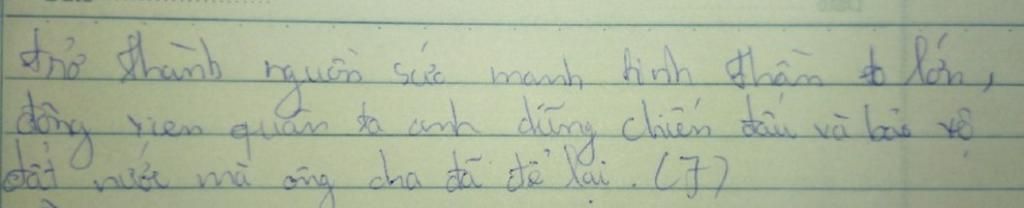 trở thành nguồn sức mạnh tinh thần to lớn,
động viên quân ta anh dũng chiến đấu và bảo vệ
đất nước mà ông cha đã để lại. (7)